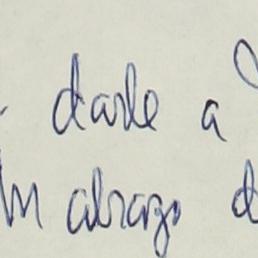 darle a
Un abrazo d